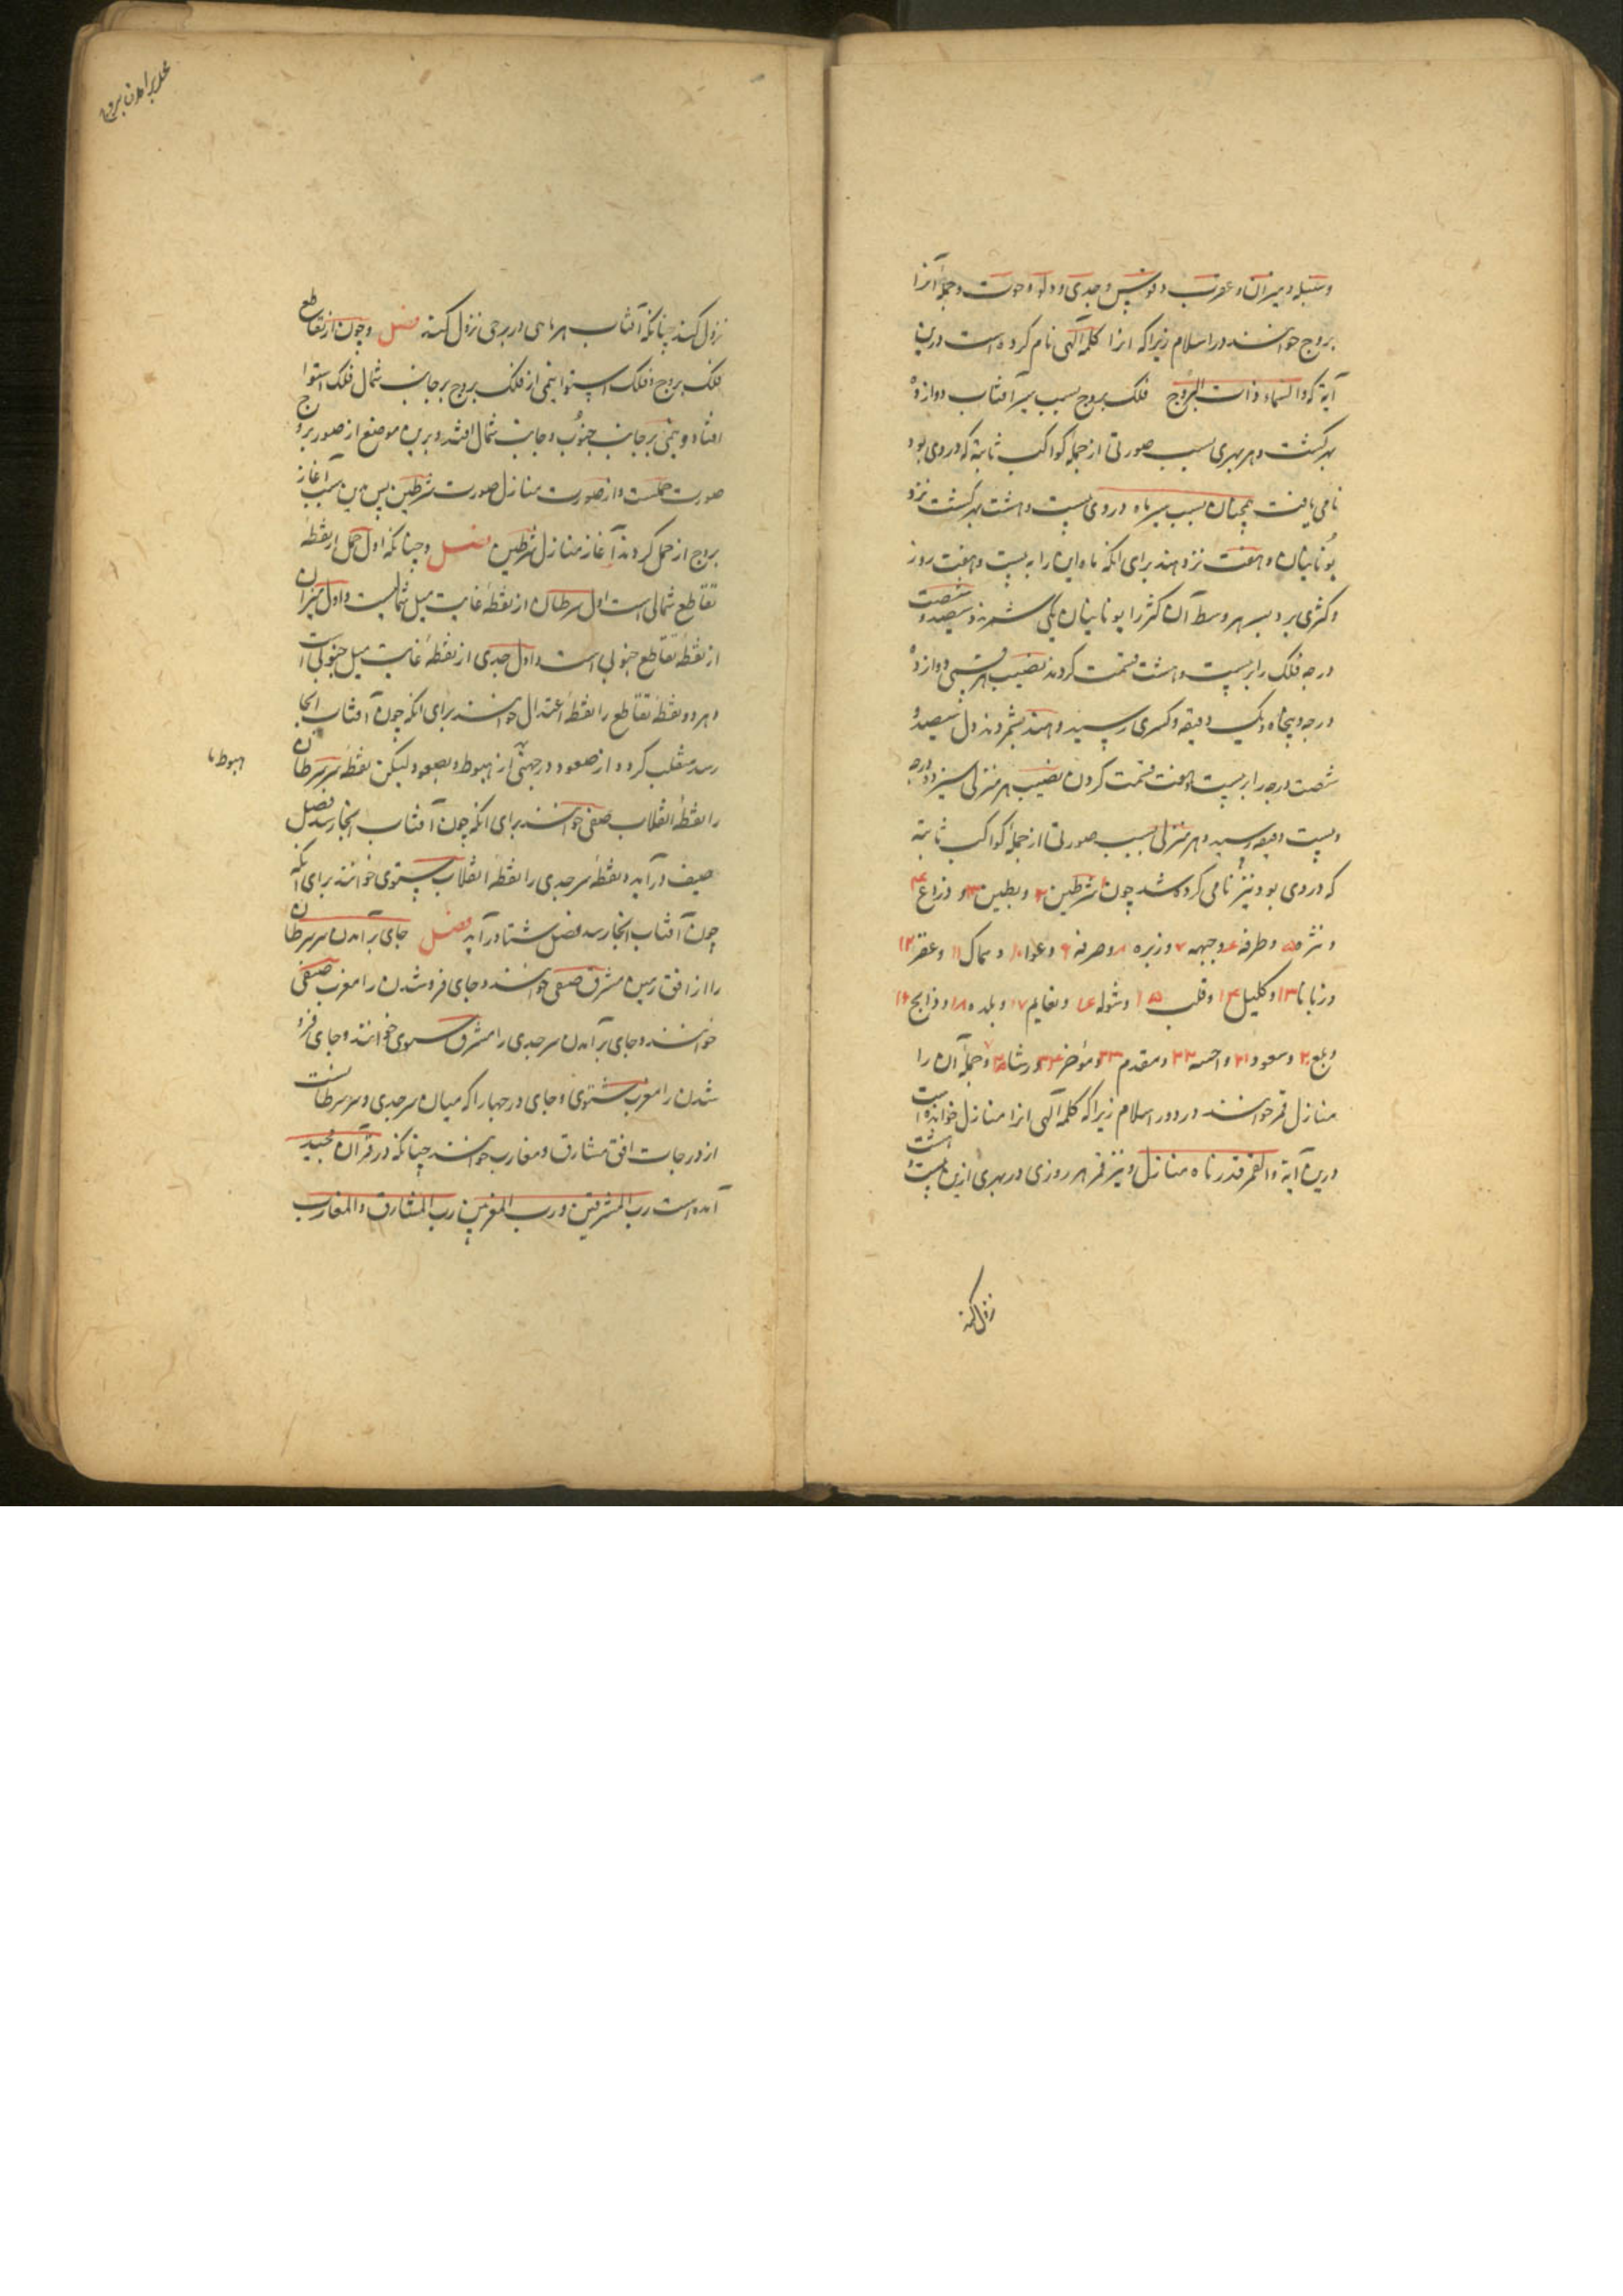 وسنبله و میزان و عقرب و قوس و جدی و دلو و حوت و جملهٔ آنرا
بروج خوانند در اسلام زیراکه انرا کلمهٔ الهی نام کرده است درین
آیة که والسماء ذات البروج فلک بروج بسبب سیر آفتاب دوازده
بهر گشت و هر بهری بسبب صورتی از جملهٔ کواکب ثابته که در وی بود
نامی یافت همچنان بسبب سیر ماه در وی بیست و هشت بهر گشت نزد
یونانیان و هفت نزد هند برای انکه ماه این را به بیست و هفت روز
و کثری برد بسیر وسط آن کثر را یونانیان یکی شمردند و سیصد و شصت
درجه فلک را بر بیست و هشت قسمت کردند نصیب هر قسمی دوازده
درجه و پنجاه و یک دقیقه و کسری رسید و هند بشمردند سیصد و
شصت درجه را بر بیست و هفت قسمت کردن نصیب هر منزلی سیزده درجه
و بیست دقیقه رسید و هر منزلی بسبب صورتی از جملهٔ کواکب ثابته
که در وی بود نیز نامی کرده شد چون شرطین و بطین و ذراع ۴
و نثره ۵ و طرفه ۶ و جبهه ۷ و زبره ۸ و صرفه ۹ و عوا ۱۰ و سماک ۱۱ و غفر ۱۲
و زبانا ۱۳ و کلیل ۱۴ و قلب ۱۵ و شوله ۱۶ و نعایم ۱۷ و بلده ۱۸ و ذابح ۱۹
و بلع ۲۰ و سعود ۲۱ و اخبیه ۲۲ و مقدم ۲۳ و مؤخر ۲۴ و رشا ۲۵ و جملهٔ آن را
منازل قمر خوانند در دور اسلام زیراکه کلمهٔ الهی انرا منازل خوانده است
درین آیة والقمر قدرناه منازل و نیز قمر هر روزی در بهری ازین بیست و هشت
نزول کند
نزول کند چنانکه آفتاب هر ماهی در برجی نزول کند فصل و چون از تقاطع
فلک بروج و فلک استوا نیمی از فلک بروج بر جانب شمال فلک استوا
افتاد و نیمی بر جانب جنوب و جانب شمال افتد و برین موضع از صور بروج
صورت حملست و از صورت منازل صورت شرطین پس بدین سبب آغاز
بروج از حمل کردند آغاز منازل شرطین فصل و چنانکه اول حمل از نقطهٔ
تقاطع شمالی است اول سرطان از نقطهٔ غایت میل شمالیست و اول میزان
از نقطهٔ تقاطع جنوبی است و اول جدی از نقطهٔ غایت میل جنوبی است
و هر دو نقطهٔ تقاطع را نقطهٔ اعتدال خوانند برای انکه چون آفتاب انجا
رسد منقلب گردد از صعود در جهتی از هبوط و بصعود لیکن نقطهٔ سر سرطان
را نقطهٔ انقلاب صیفی خوانند برای انکه چون آفتاب انجا رسد فصل
صیف در آید و نقطهٔ سر جدی را نقطهٔ انقلاب شتوی خوانند برای انکه
چون آفتاب انجا رسد فصل شتا در آید فصل جای برآمدن سر سرطان
را از افق زمین مشرق صیفی خوانند و جای فروشدن را مغرب صیفی
خوانند و جای برآمدن سر جدی را مشرق شتوی خوانند و جای فرو
شدن را مغرب شتوی و جای درجها را که میان سر جدی و سر سرطانست
از درجات افق مشارق و مغارب خوانند چنانکه در قرآن مجید
آمده است رب المشرقین و رب المغربین رب المشارق والمغارب